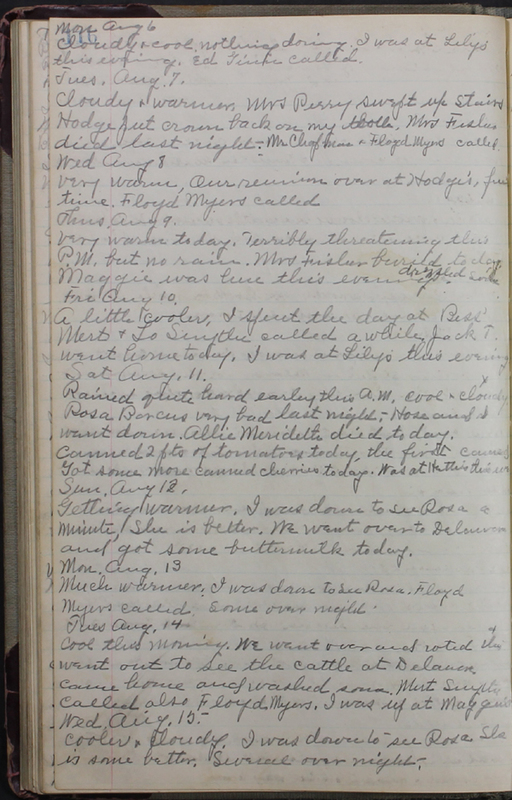 Mon Aug 6
Cloudy & cool, nothing doing. I was at Lilys
this evening. Ed called.
Tues. Aug. 7.
Cloudy & warmer, Mrs Perry swept up stairs
Hodge put crown back on my tooth. Mrs Fisher
died last night - Mr Chapman & Floyd Myers called.
Wed Aug 8
Very warm, Our reunion over at Hodge's, fine
time. Floyd Myers called
Thus. Aug 9.
Very warm today. Terribly threatening this
P.M. but no rain. Mrs Fisher buried today.
Maggie was here this evening. drizzled some
Fri Aug 10,
A little cooler, I spent the day at Bess'
Mert & Lo Smythe called a while, Jack T.
went home today. I was at Lilys this evening
Sat Aug. 11.
Rained quite heard earley this A.M. cool & cloudy
Rosa Barcus very bad last night, - Hose and I
went down. Allie Merideth died today.
Canned 2 pts of tomatoes today, the first canned
Got some more canned cherries today. Was at Hattie's this eve
Sun. Aug 12,
Getting warmer, I was down to see Rosa a
minute, She is better. We went over to
and got some buttermilk today.
Mon. Aug. 13
Much warmer, I was down to see Rosa. Floyd
Myers called, Some over night.
Tues Aug. 14
Cool this morning. We went over and voted &
went out to see the cattle at
came home and washed some. Mert Smythe
called also Floyd Myers. I was up at Maggie's
Wed. Aug. 15-
Cooler & Cloudy, I was down to see Rosa She
is some better. Several over night.